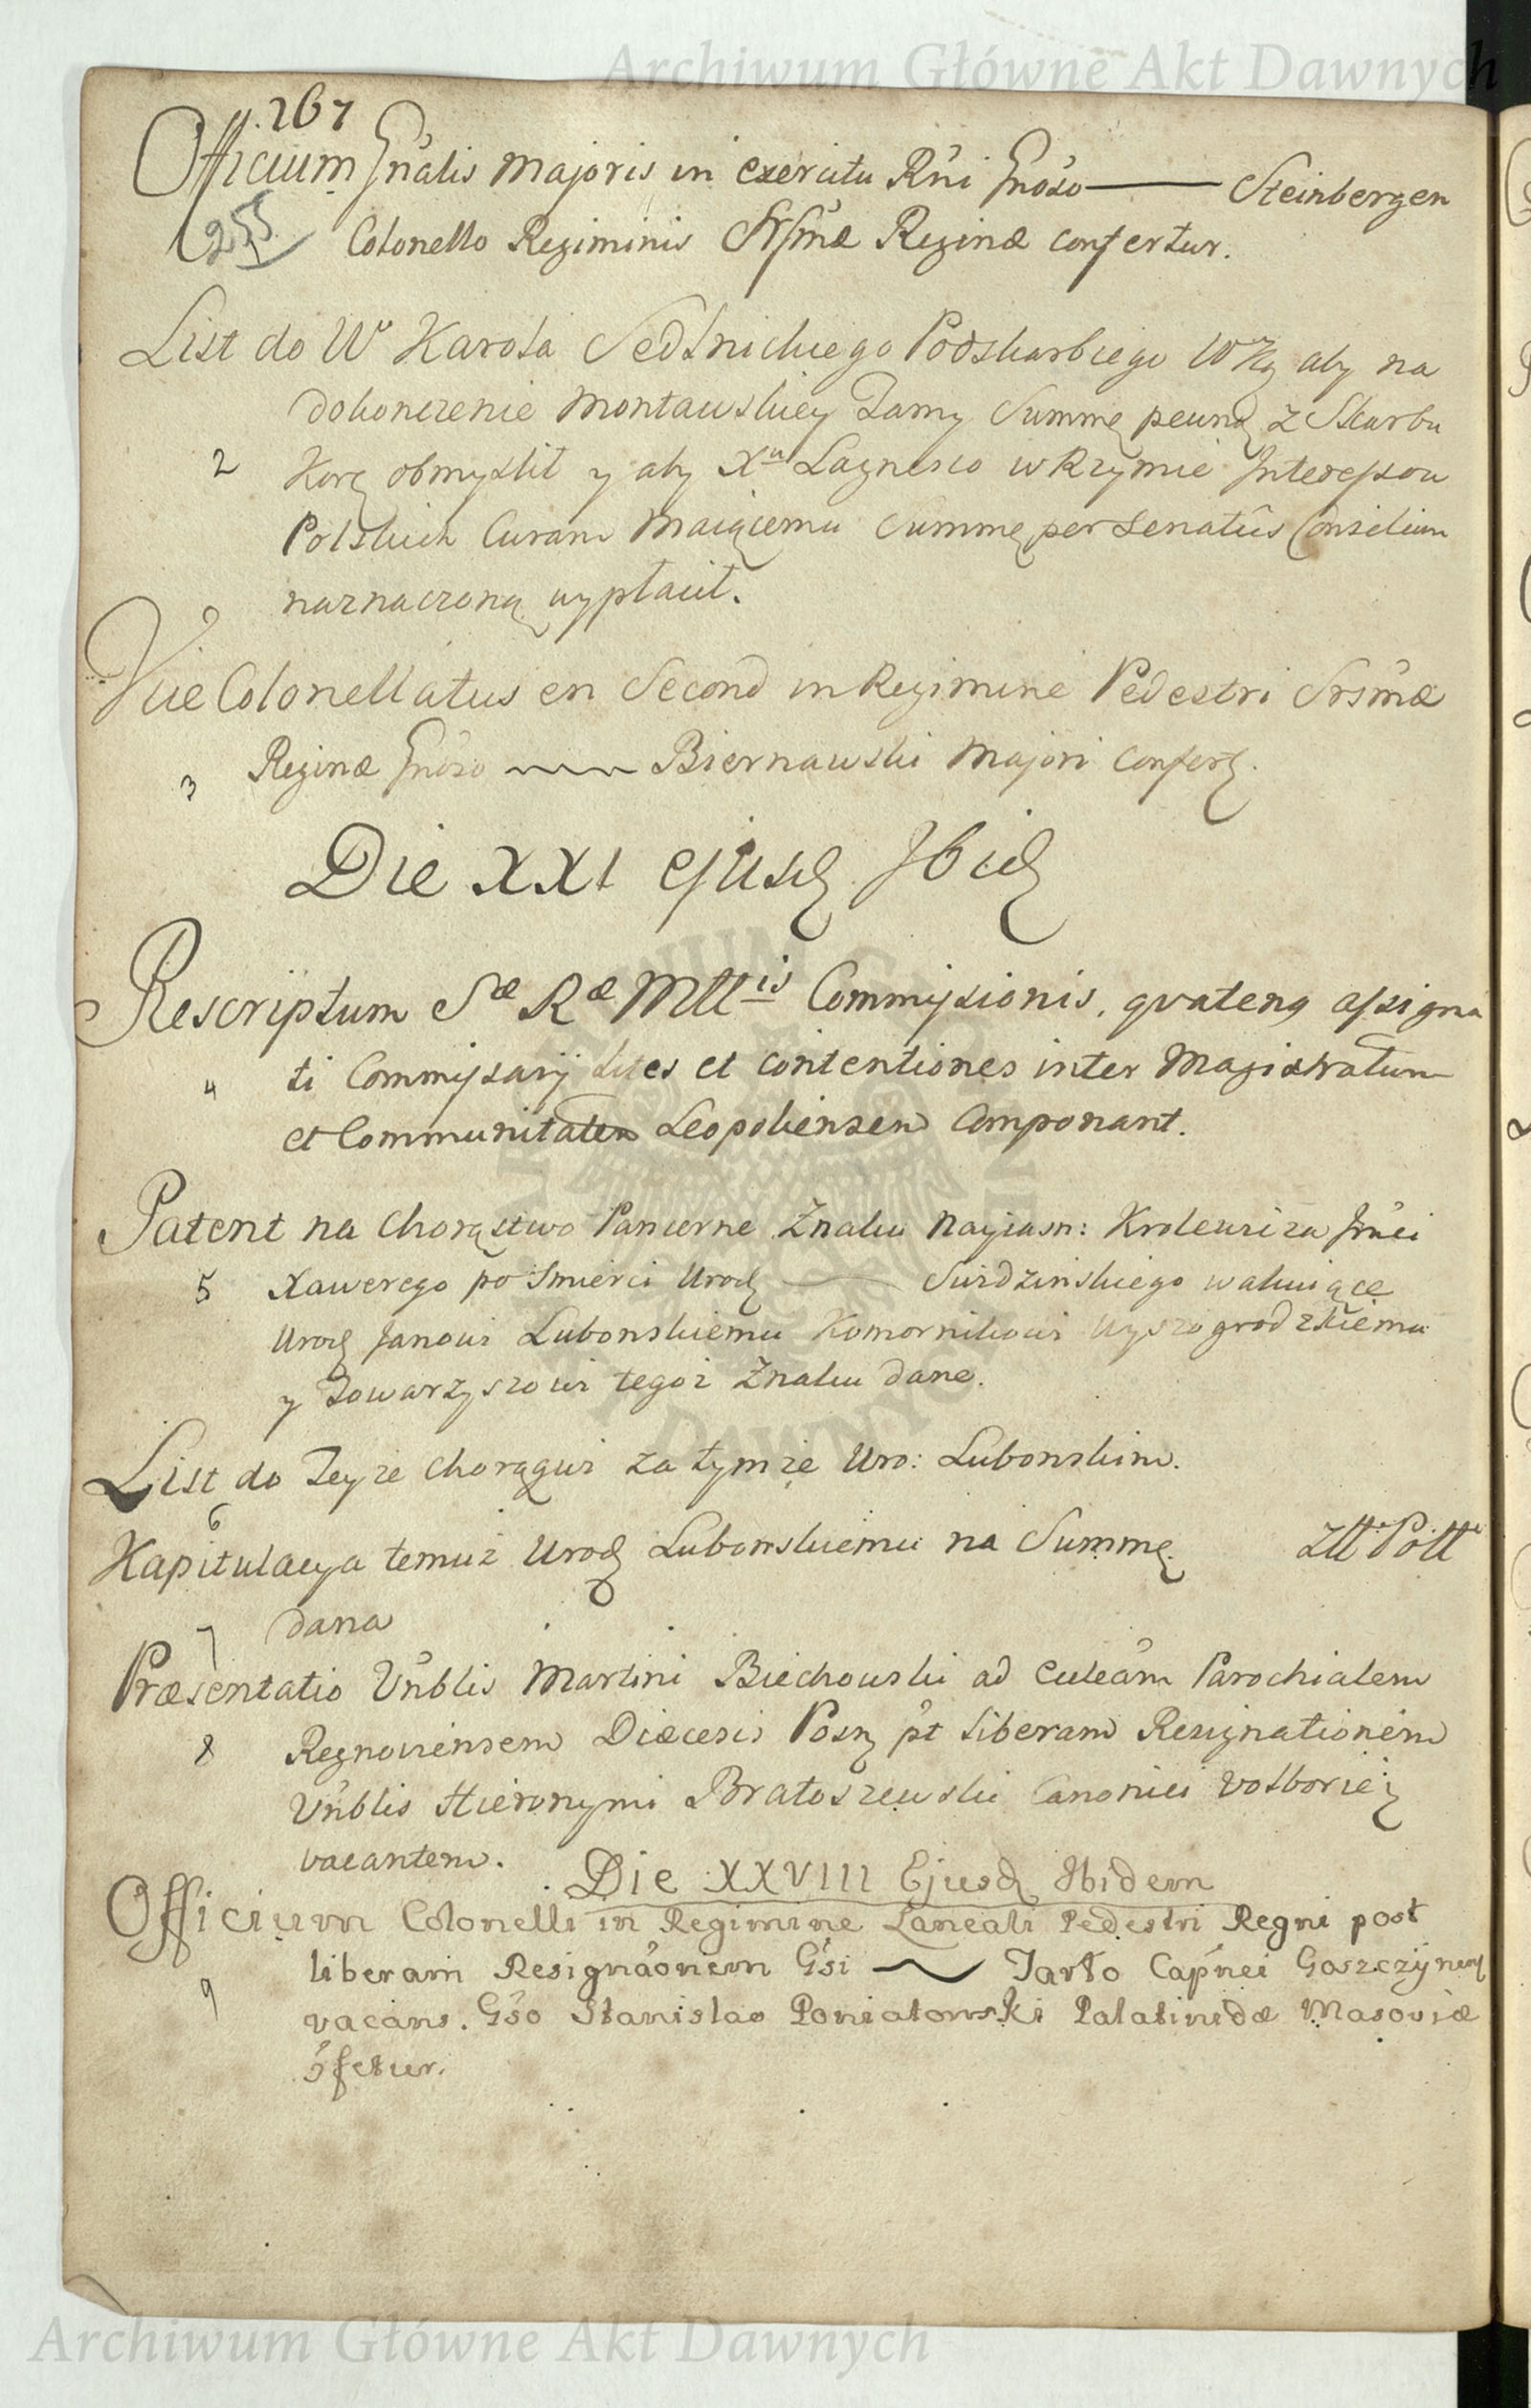 Archiwum Główne Akt Dawnych
267
Officium Gńalis Majoris in Exercitu Rńi Gńoso —— Steinbergen
255 Colonello Regiminis Srſmæ Reginæ confertur.
List do Wº Karola Sedlnickiego Podskarbiego WKg aby na
dokonczenie Montawskiey Tamy Summę pewną z Skarbu
2 Korg obmyslił y aby Xu Lagnesco w Rzymie Interessow
Polskich Curam Maiącemu Summę per Senatûs Consilium
naznaczoną wypłacił.
Vice Colonellatus en Second in Regimine Pedestri Srsmæ
3 Reginæ Gńoso ~~~ Biernawski Majori Confertg.
Die XXI ejusdg Ibidg
Rescriptum Sæ Ræ Mttis Commissionis, qvateng assigna
4 ti Commissarij Lites et contentiones inter Magistratum
et Communitatem Leopoliensem Componant.
Patent na Chorąstwo Pancerne Znaku Nayiasn: Krolewica Jmći
5 Xawerego po Smierci Urodg —— Swidzinskiego wakuiące
Urodg Janowi Lubonskiemu Komornikowi Wyszogrodzkiemu
y Towarzyszowi tegoz Znaku dane.
List do Teyze Chorągwi za tymze Uro: Lubonskim.
6
Kapitulacya temuz Urodg Lubonskiemu na Summę Złł Poll
7 dana
Præsentatio Vńblis Martini Biechowski ad Eccleam Parochialem
8 Regnoviensem Diæcesis Posng pt liberam Resignationem
Vńblis Hieronymi Bratoszewski Canonici Volboriež
vacantem.
Die XXVIII Ejusdg Ibidem
Officium Colonelli in Regimine Laneali Pedestri Regni post
9 liberam Resignãonem Gsi ~ Tarło Capńei Goszczynens
vacans. Gso Stanislao Poniatowski Palatinidæ Masoviæ
ɔfetur.
Archiwum Główne Akt Dawnych